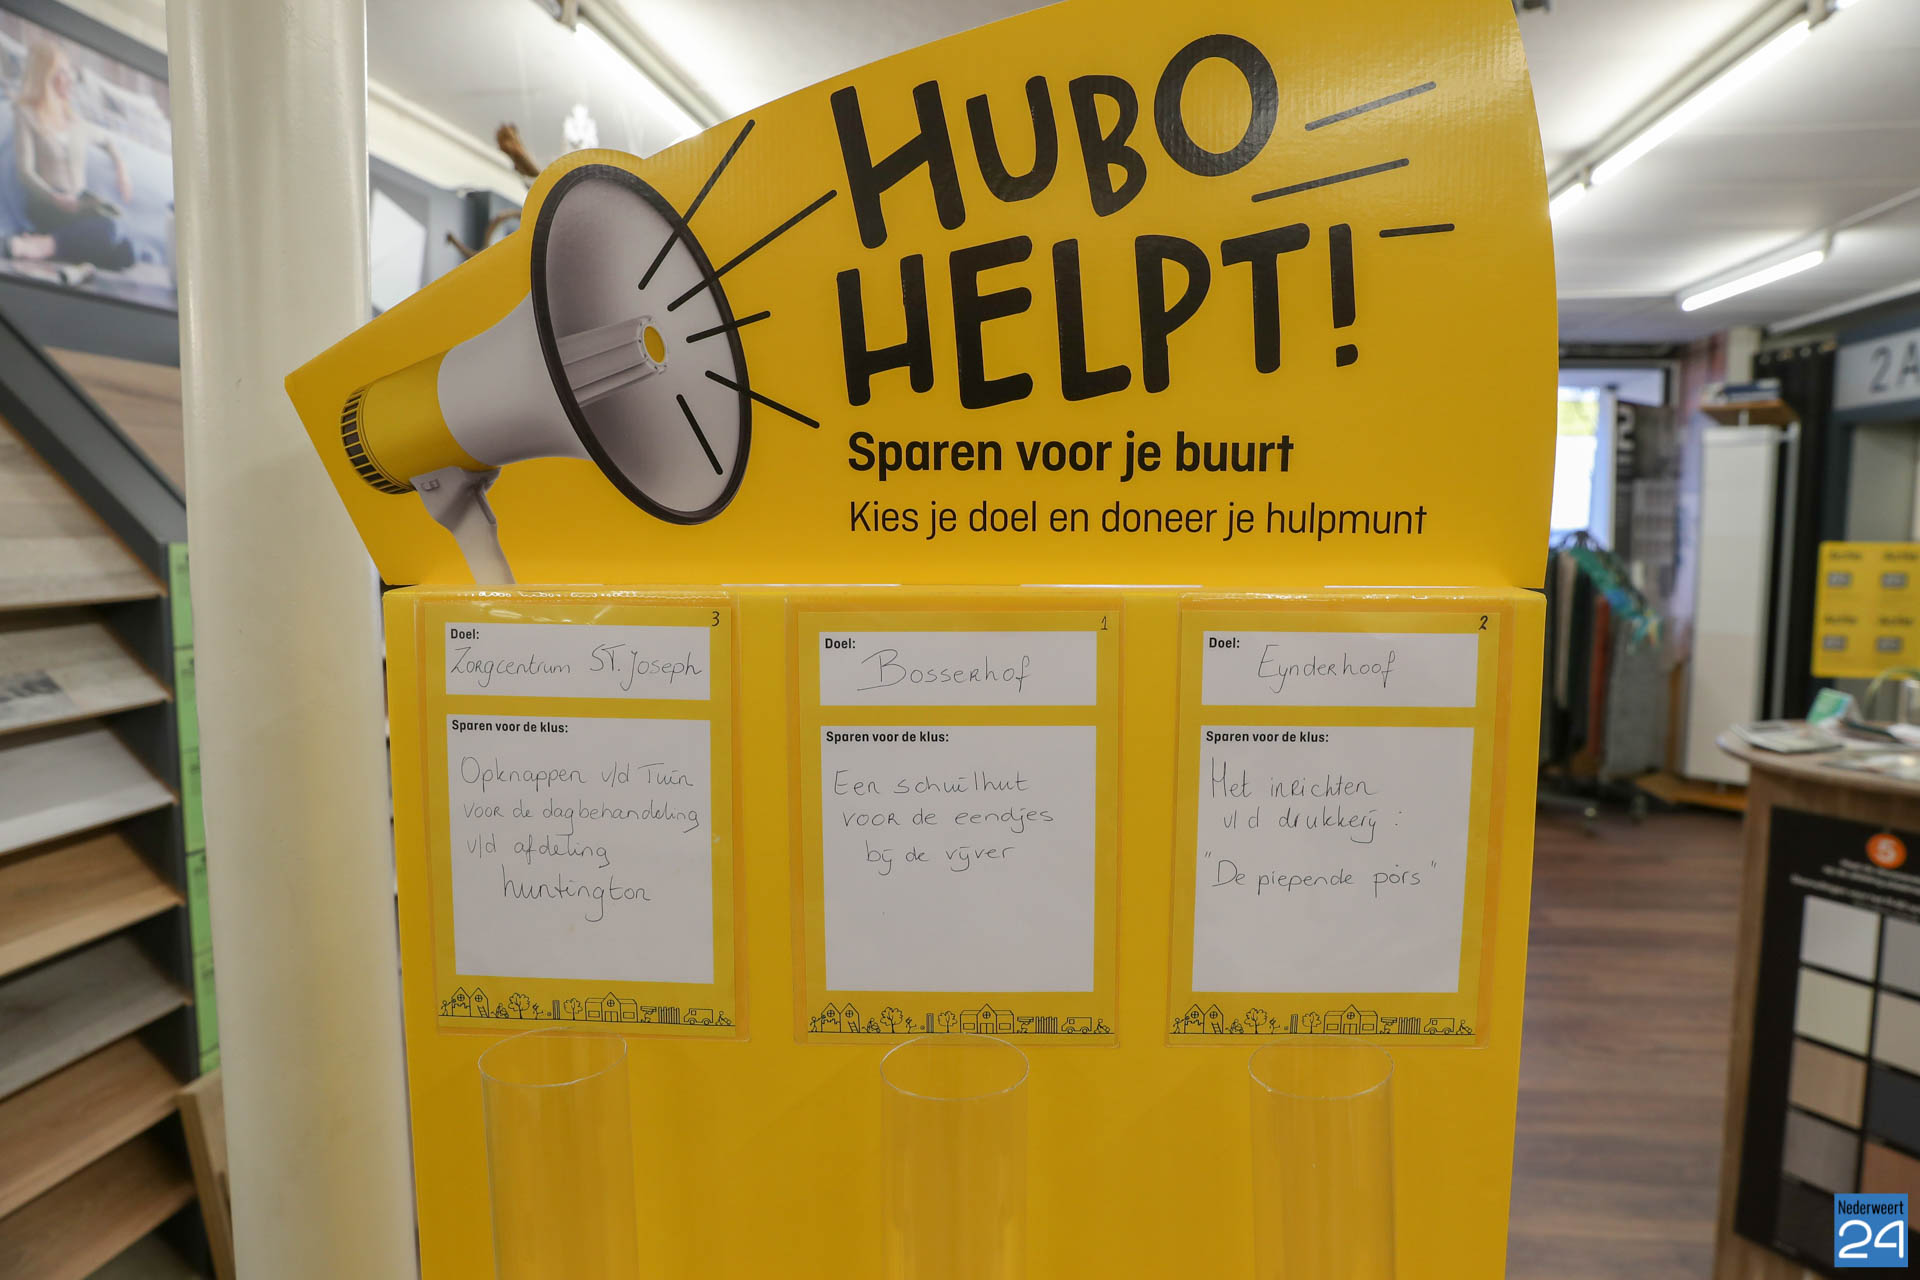 HUBO
HELPT!
Sparen voor je buurt
Kies je doel en doneer je hulpmunt
3
Doel:
Zorgcentrum ST. Joseph
Sparen voor de klus:
Opknappen v/d Tuin
voor de dagbehandeling
v/d afdeling
huntington
1
Doel:
Bosserhof
Sparen voor de klus:
Een schuilhut
voor de eendjes
bij de vijver
2
Doel:
Eynderhoof
Sparen voor de klus:
Het inrichten
v/d drukkerij:
"De piepende pörs"
2A
5
Nederweert
24